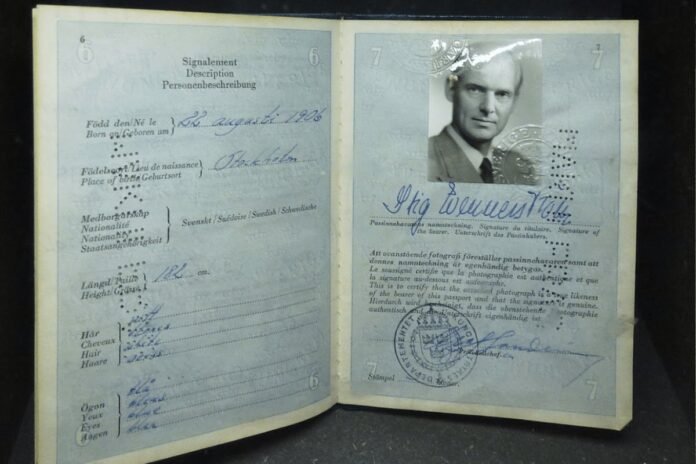 6
Signalement
Description
Personenbeschreibung
Född den/Né le
Born on/Geboren am
22 augusti 1906
Födelseort/Lieu de naissance
Place of birth/Geburtsort
Stockholm
Medborgarskap
Nationalité
Nationality
Staatsangehörigkeit
Svenskt/Suédoise/Swedish/Schwedische
Längd/Taille
Height/Grösse
182 cm.
Hår
Cheveux
Hair
Haare
Ögon
Yeux
Eyes
Augen
blå
bleus
blue
blau
6
6
7
7
Stig Wennerström
Passinnehavarens namnteckning. Signature du titulaire. Signature of
the bearer. Unterschrift des Passinhabers.
Att ovanstående fotografi föreställer passinnehavaren samt att
dennes namnteckning är egenhändig betygas.
Le soussigné certifie que la photographie est authentique et que
la signature au-dessous est autographe.
This is to certify that the attached photograph is a true likeness
of the bearer of this passport and that the signature is genuine.
Hierdurch wird bescheinigt, dass die obenstehende Photographie
authentisch und die Unterschrift eigenhändig ist.
Stämpel
7
7